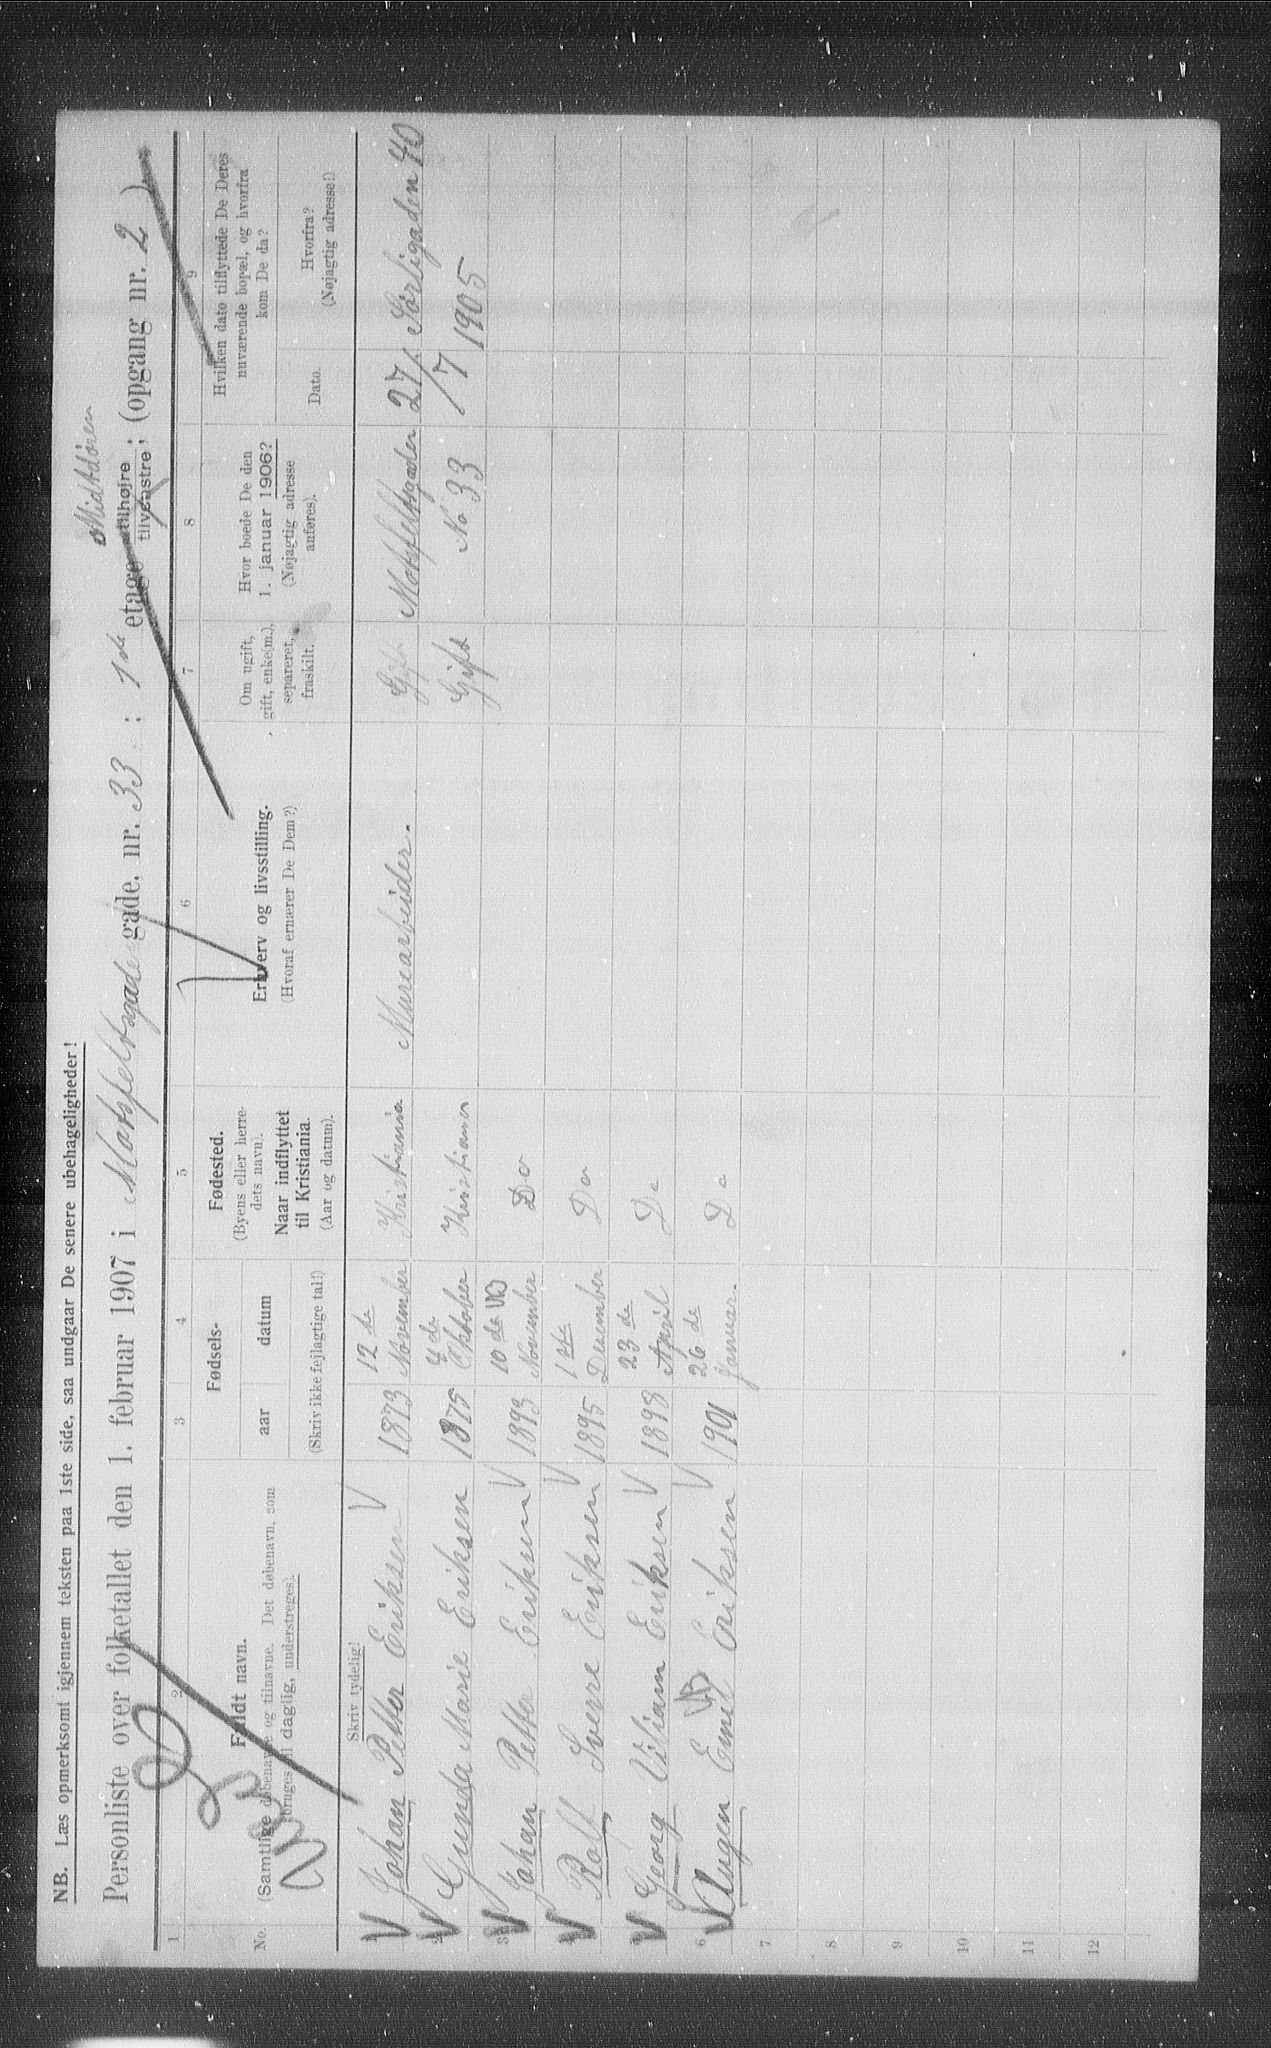 NB. Læs opmerksomt igjennem teksten paa 1ste side, saa undgaar De senere ubehageligheder!
Personliste over folketallet den 1. februar 1907 i Motzfeltsgade gade, nr. 33 ; 1ste etage tilhøjre tilvenstre ; (opgang nr. 2 )
Midtdøren
1 2 3 4 5 6 7 8 9
No.
Fuldt navn.
(Samtlige døbenavne og tilnavne. Det døbenavn, som
bruges til daglig, understreges).
Fødsels-
aar datum
(Skriv ikke fejlagtige tal!)
Fødested.
(Byens eller herre-
dets navn).
Naar indflyttet
til Kristiania.
(Aar og datum).
Erhverv og livsstilling.
(Hvoraf ernærer De Dem?)
Om ugift,
gift, enke(m.),
separeret,
fraskilt.
Hvor boede De den
1. januar 1906?
(Nøjagtig adresse
anføres).
Hvilken dato tilflyttede De Deres
nuværende bopæl, og hvorfra
kom De da?
Dato.
Hvorfra?
(Nøjagtig adresse!)
Skriv tydelig!
Johan Petter Eriksen 1873 12 de November Kristiania Murearbeider. Gift Motzfeltsgaden 27/7 Sørligaden 40
2 Gunda Marie Eriksen 1875 4 de Oktober Kristiania Gift No 33 1905
3 Johan Petter Eriksen 1893 10 de November Do
Rolf Sverre Eriksen 1895 1 ste Desember Do
Georg Viliam Eriksen 1898 23 de April Do
6 Augen Emil Eriksen 1901 26 de Januar. Do
7
8
9
10
11
12